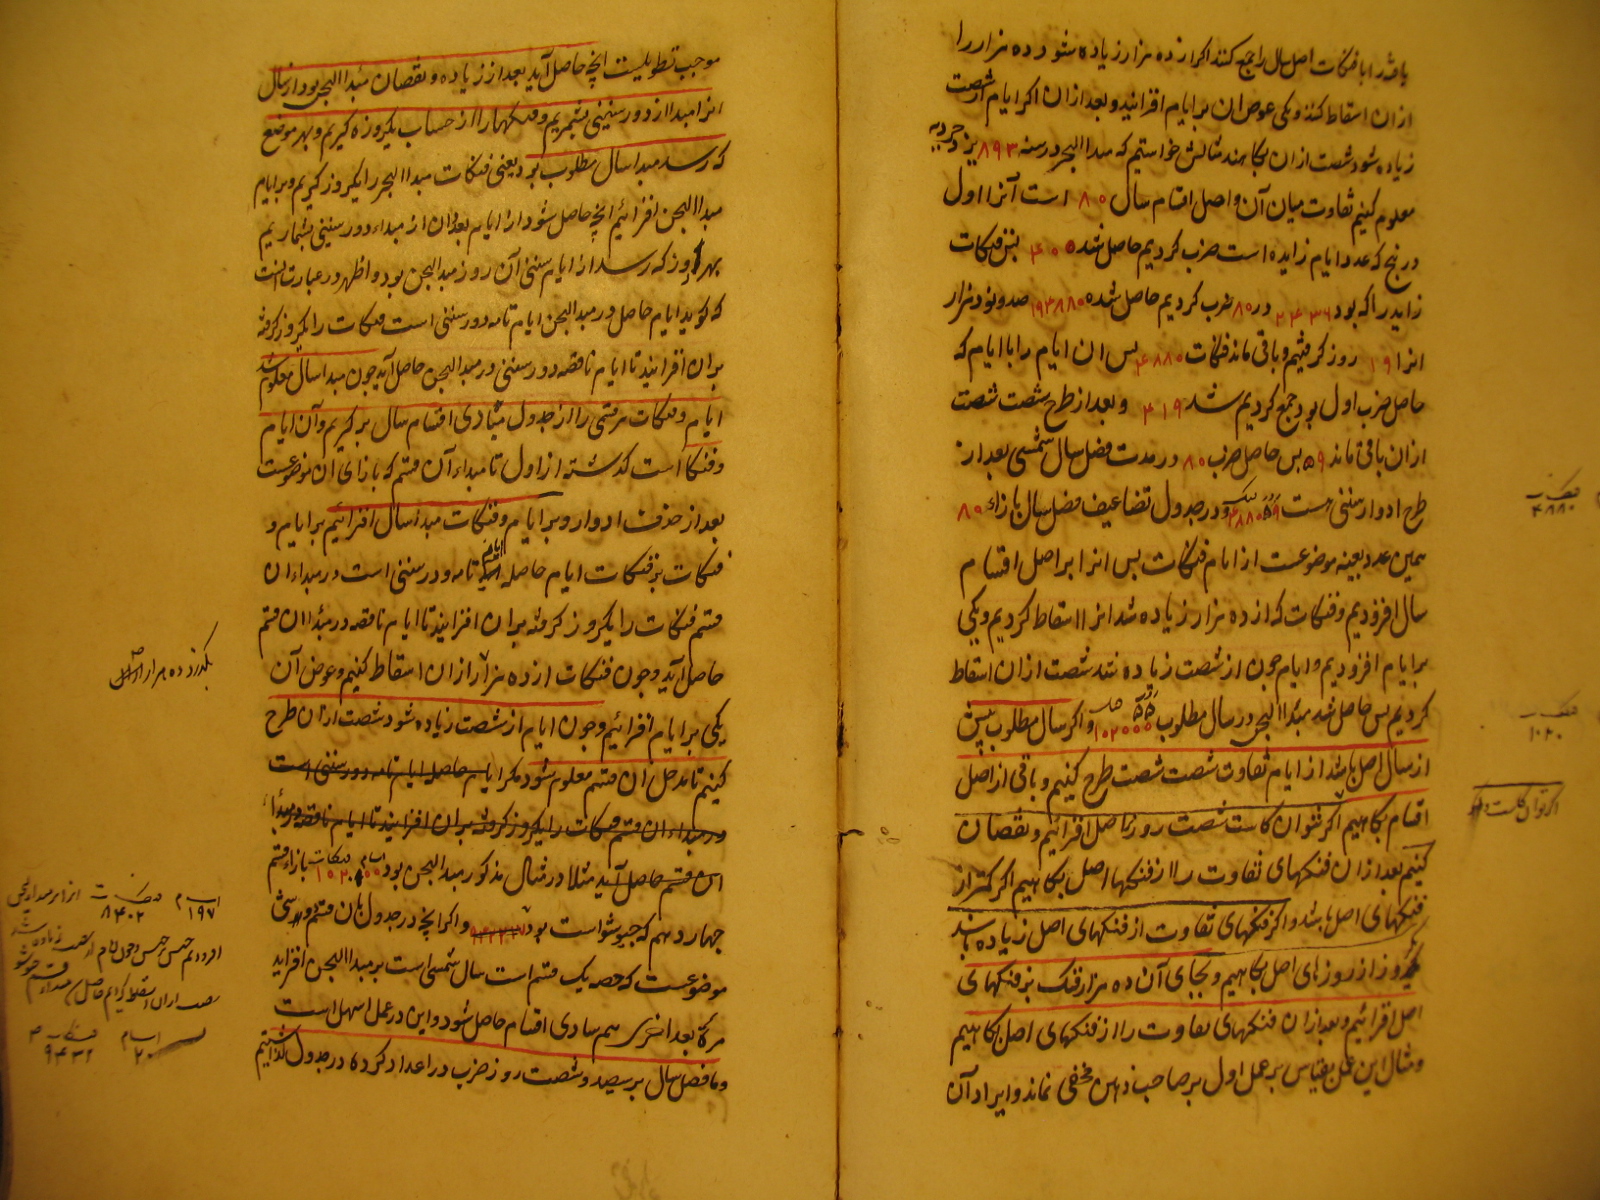 یافته را با فنکات اصل سال را جمع کنند اکر از ده هزار زیاده شود ده هزار را
از ان اسقاط کنند و یکی عوض ان بر ایام افزایند و بعد از ان اکر ایام از شصت
زیاده شود شصت از ان بکاهند مثالش خواستیم که مبدا البجن در سنه ۸۹۳ یزدجردیه
معلوم کنیم تفاوت میان آن و اصل اقسام سال ۸۰ است آنرا اول
در پنج که عدد ایام زایده است ضرب کردیم حاصل شد ۴۰۰ پس فنکات
زاید را که بود ۲۴۳۶ در ۸۰ ضرب کردیم حاصل شده ۱۹۴۸۸۰ صد و نود هزار
انرا ۱۹ روز کرفتیم و باقی ماند فنکات ۴۸۸۰ پس ان ایام را با ایام که
حاصل ضرب اول بود جمع کردیم شد ۴۱۹ و بعد از طرح شصت شصت
از ان باقی ماند ۵۹ پس حاصل ضرب ۸۰ در مدت فضل سال شمسی بعد از
طرح ادوار ستینی است ۵۹ ۴۸۸۰ و در جدول تضاعیف فضل سال بازاء ۸۰
همین عدد بعینه موضوعست از ایام فنکات پس انرا بر اصل اقسام
سال افزودیم و فنکات که از ده هزار زیاده شد انرا اسقاط کردیم و یکی
بر ایام افزودیم و ایام چون از شصت زیاده شد شصت از ان اسقاط
کردیم پس حاصل شد مبدا البجن در سال مطلوب و اکر سال مطلوب پیش
از سال اصل باشد از ایام تفاوت شصت شصت طرح کنیم و باقی از اصل
اقسام بکاهیم اکر نتوان کاست شصت روز بر اصل افزائیم و نقصان
کنیم بعد از ان فنکهای تفاوت را از فنکها اصل بکاهیم اکر کمتر از
فنکهای اصل باشد و اکر فنکهای تفاوت از فنکهای اصل زیاده باشد
یکروز از روزهای اصل بکاهیم و بجای آن ده هزار فنک بر فنکهای
اصل افزائیم و بعد از ان فنکهای تفاوت را از فنکهای اصل بکاهیم
و مثال این عمل بقیاس بر عمل اول بر صاحب ذهن مخفی نماند و ایراد آن
فنکـ
۴۸۸۰
فنکـ
۱۰۲۰
موجب تطویلست انچه حاصل آید بعد از زیاده و نقصان مبدا البجن بود از سال
انرا مبدا از دور ستینی بشمریم و فنکها را از حساب یکروزه کیریم و بهر موضع
که رسد مبدا سال مطلوب بود یعنی فنکات مبدا البجن را یکروز کیریم و بر ایام
مبدا البجن افزائیم انچه حاصل شود از ایام بعد ان از مبداء دور ستینی بشماریم
بهر روز که رسد از ایام ستینی آن روز مبدا البجن بود و اظهر در عبارت انست
که کوید ایام حاصل در مبدا البجن ایام تامه دور ستینی است فنکات را یکروز کرفته
بران افزایند تا ایام ناقصه دور ستینی در مبدا البجن حاصل آید چون مبدا سال معلوم شد
ایام و فنکات هر قسمی را از جدول مبادی اقسام سال بر کیریم و آن ایام
و فنکها است که کذشته از اول تا مبداء آن قسم که بازای ان موضوعست
بعد از حذف ادوار و بر ایام و فنکات مبدا سال افزائیم بر ایام و
فنکات بر فنکات ایام حاصله ایام تامه دور ستینی است در مبداء ان
قسم فنکات را یکروز کرفته بران افزایند تا ایام ناقصه در مبدا ان قسم
حاصل آید و چون فنکات از ده هزار از ان اسقاط کنیم و عوض آن
یکی بر ایام افزائیم و چون ایام از شصت زیاده شود شصت از ان طرح
کنیم تا مدخل ان قسم معلوم شود مکر ایام حاصل ایام تامه دور ستینی است
در مبداء ان قسم فنکات را یکروز کرفته بران افزایند تا ایام ناقصه در مبدا
ان قسم حاصل آید مثلا در مثال مذکور مبدا البجن بود ایام ۵۵ فنکات ۱۰۲۰ بازاء قسم
چهاردهم که جیوشو است بود و اکر انچه در جدول بان قسم
موضوعست که حصه یک قسم است سال شمسی است بر مبدا البجن افزاید
مرة بعد اخری هم مبادی اقسام حاصل شود و این در عمل اسهل است
و ما فضل سال بر سیصد و شصت روز ضرب در اعداد کرده در جدول کذاشتیم
بکذرد ده هزار از ان
ایام فنکـ انرا بر مبدا البجن
۱۹۷ ۸۴۰۲
ایام فنکـ
۲۰ ۹۴۲۲